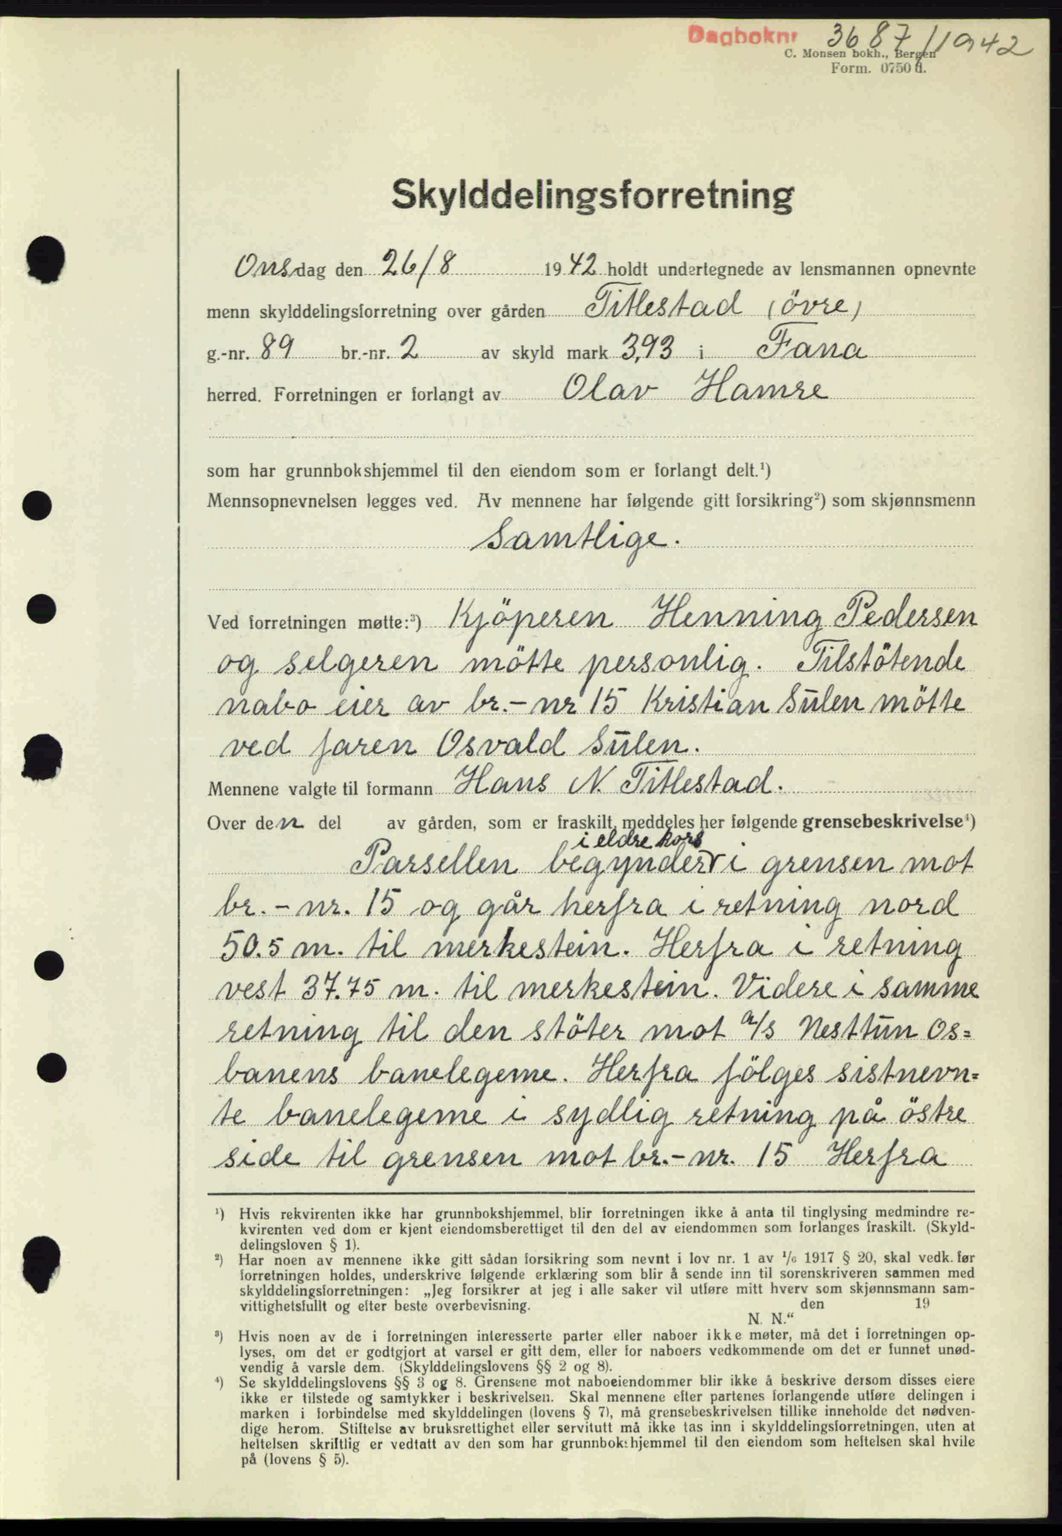 Dagboknr 3687/1942
C. Monsen bokh., Bergen
Form. 0750 d.
Skylddelingsforretning
Onsdag den 26/8 1942 holdt undertegnede av lensmannen opnevnte
menn skylddelingsforretning over gården Titlestad (övre)
g.-nr. 89 br.-nr. 2 av skyld mark 3,93 i Fana
herred. Forretningen er forlangt av Olav Hamre
som har grunnbokshjemmel til den eiendom som er forlangt delt.¹)
Mennsopnevnelsen legges ved. Av mennene har følgende gitt forsikring²) som skjønnsmenn
Samtlige.
Ved forretningen møtte:³) Kjöperen Henning Pedersen
og selgeren mötte personlig. Tilstötende
nabo eier av br.-nr 15 Kristian Sūlen mötte
ved faren Osvald Sūlen.
Mennene valgte til formann Hans N. Titlestad.
Over den del av gården, som er fraskilt, meddeles her følgende grensebeskrivelse⁴)
i eldre kors
Parsellen begynder i grensen mot
br.-nr. 15 og går herfra i retning nord
50.5 m. til merkestein. Herfra i retning
vest 37.75 m. til merkestein. Videre i samme
retning til den stöter mot a/s Nesttūn Os=
banens banelegeme. Herfra fölges sistnevn=
te banelegeme i sydlig retning på östre
side til grensen mot br.-nr. 15 Herfra
¹) Hvis rekvirenten ikke har grunnbokshjemmel, blir forretningen ikke å anta til tinglysing medmindre re-
kvirenten ved dom er kjent eiendomsberettiget til den del av eiendommen som forlanges fraskilt. (Skyld-
delingsloven § 1).
²) Har noen av mennene ikke gitt sådan forsikring som nevnt i lov nr. 1 av ¹/₆ 1917 § 20, skal vedk. før
forretningen holdes, underskrive følgende erklæring som blir å sende inn til sorenskriveren sammen med
skylddelingsforretningen: „Jeg forsikrer at jeg i alle saker vil utføre mitt hverv som skjønnsmann sam-
vittighetsfullt og efter beste overbevisning. den 19
N. N.“
³) Hvis noen av de i forretningen interesserte parter eller naboer ikke møter, må det i forretningen op-
lyses, om det er godtgjort at varsel er gitt dem, eller for naboers vedkommende om det er funnet unød-
vendig å varsle dem. (Skylddelingslovens §§ 2 og 8).
⁴) Se skylddelingslovens §§ 3 og 8. Grensene mot naboeiendommer blir ikke å beskrive dersom disses eiere
ikke er tilstede og samtykker i beskrivelsen. Skal mennene efter partenes forlangende utføre delingen i
marken i forbindelse med skylddelingen (lovens § 7), må grensebeskrivelsen tillike inneholde det nødven-
dige herom. Stiftelse av bruksrettighet eller servitutt må ikke tas inn i skylddelingsforretningen, uten at
heftelsen skriftlig er vedtatt av den som har grunnbokshjemmel til den eiendom som heftelsen skal hvile
på (lovens § 5).